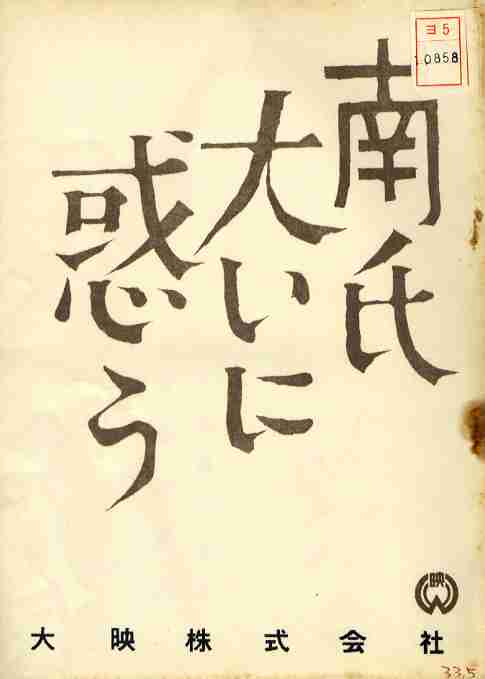 ヨ5
10858
南氏
大いに
惑う
映
大映株式会社
33.5